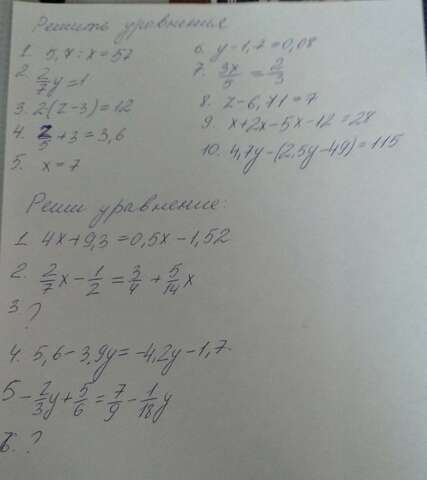 Решить уравнения
1. 5,7 : x = 57
2. 2/7 y = 1
3. 2(z-3) = 12
4. z/5 + 3 = 3,6
5. x = 7
6. y - 1,2 = 0,08
7. 3x/5 = 2/3
8. z - 6,71 = 7
9. x + 2x - 5x - 12 = 28
10. 4,7y - (2,5y - 49) = 115
Реши уравнение:
1. 4x + 9,3 = 0,5x - 1,52
2. 2/7 x - 1/2 = 3/4 + 5/14 x
3 ?
4. 5,6 - 3,9y = -4,2y - 1,7.
5 - 2/3 y + 5/6 = 7/9 - 1/18 y
6. ?